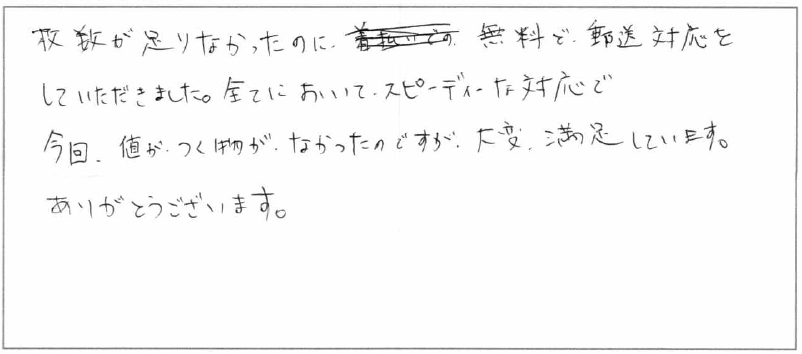 枚数が足りなかったのに、無料で、郵送対応を
していただきました。全てにおいて、スピーディーな対応で
今回、値が、つく物が、なかったのですが、大変、満足しています。
ありがとうございます。